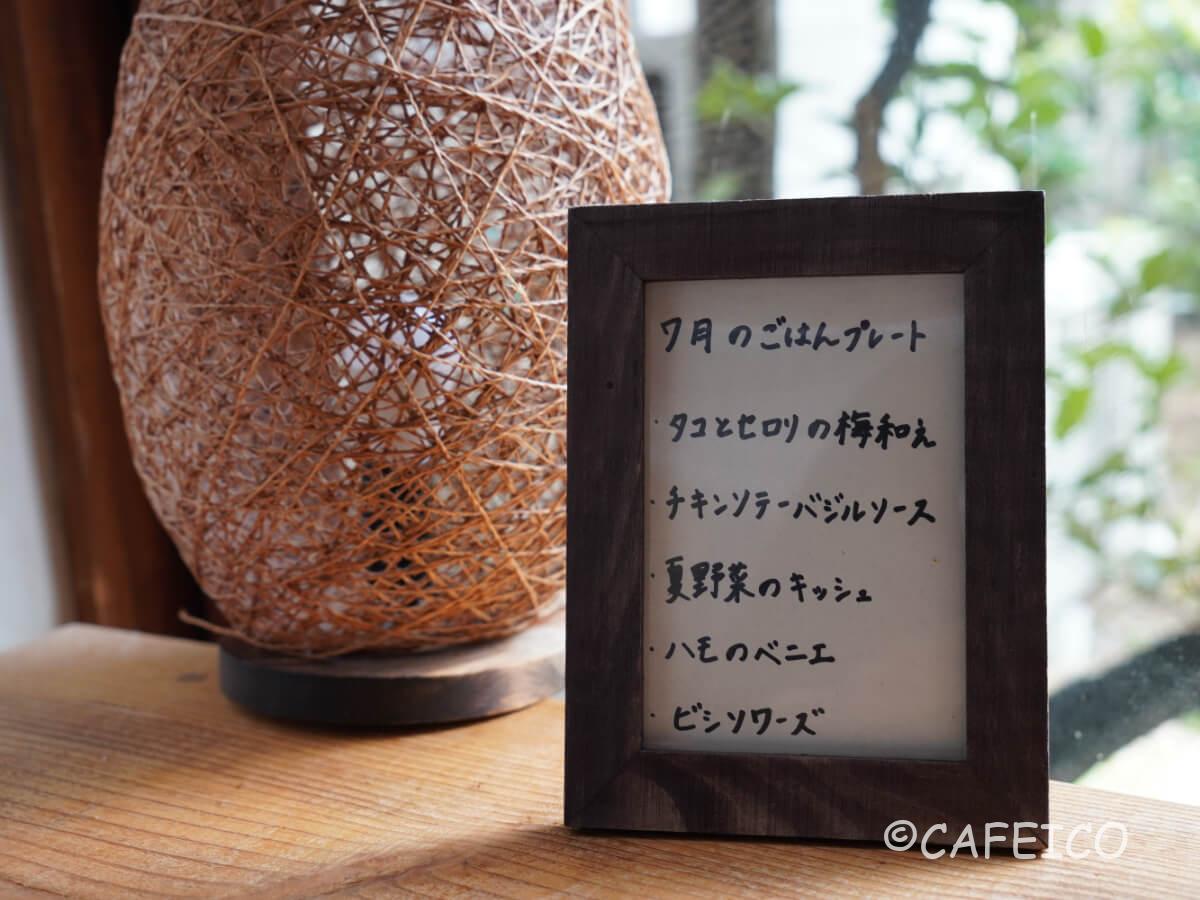 7月のごはんプレート
・タコとセロリの梅和え
・チキンソテーバジルソース
・夏野菜のキッシュ
・ハモのベニエ
・ビシソワーズ
©CAFEICO